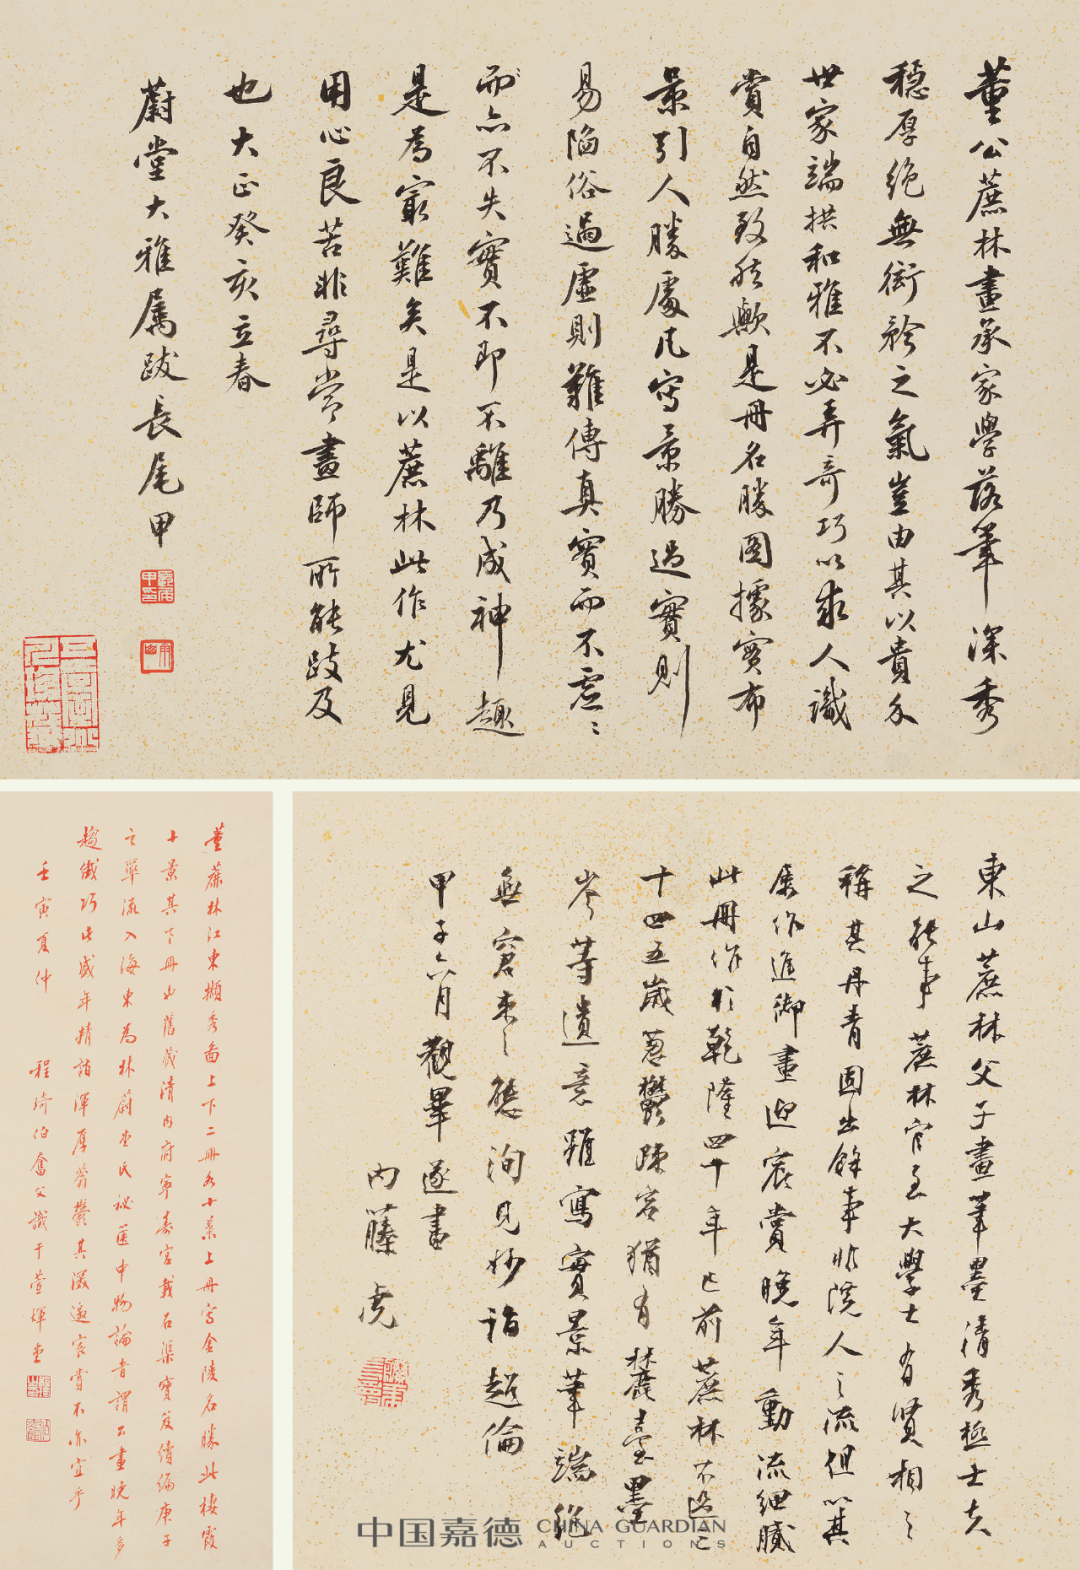 董公蔗林畫承家學落筆深秀
穩厚絕無衒矜之氣豈由其以貴介
世家端拱和雅不必弄奇巧以求人識
賞自然致然歟是冊名勝圖據實布
景引人勝處凡寫景勝過實則
易陷俗過虛則難傳真實而不虛虛
而亦不失實不即不離乃成神趣
是為最難矣是以蔗林此作尤見
用心良苦非尋常畫師所能跂及
也大正癸亥立春
蔚堂大雅屬跋長尾甲
東山蔗林父子畫筆墨清秀極士夫
之能事蔗林官至大學士有賢相之
稱其丹青固出餘事非院人之流但以其
屢作進御畫迎宸賞晚年動流細膩
此冊作於乾隆四十年已前蔗林不過三
十四五歲蔥鬱疎宕猶有麓臺墨
岑等遺意雖寫實景筆端絕
無窘束之態洵見妙詣超倫
甲子六月觀畢遂書
內藤虎
董蔗林江東擷秀圖上下二冊各十景上冊寫金陵名勝此棲霞
十景其下冊也舊藏清內府寧壽宮載石渠寶笈續編庚子
之舉流入海東為林蔚堂氏祕匧中物論者謂公畫晚年多
趨纖巧此盛年精詣渾厚蒼鬱其激邀宸賞不亦宜乎
壬寅夏仲 程琦伯奮父識于萱暉堂
中国嘉德 CHINA GUARDIAN
AUCTIONS